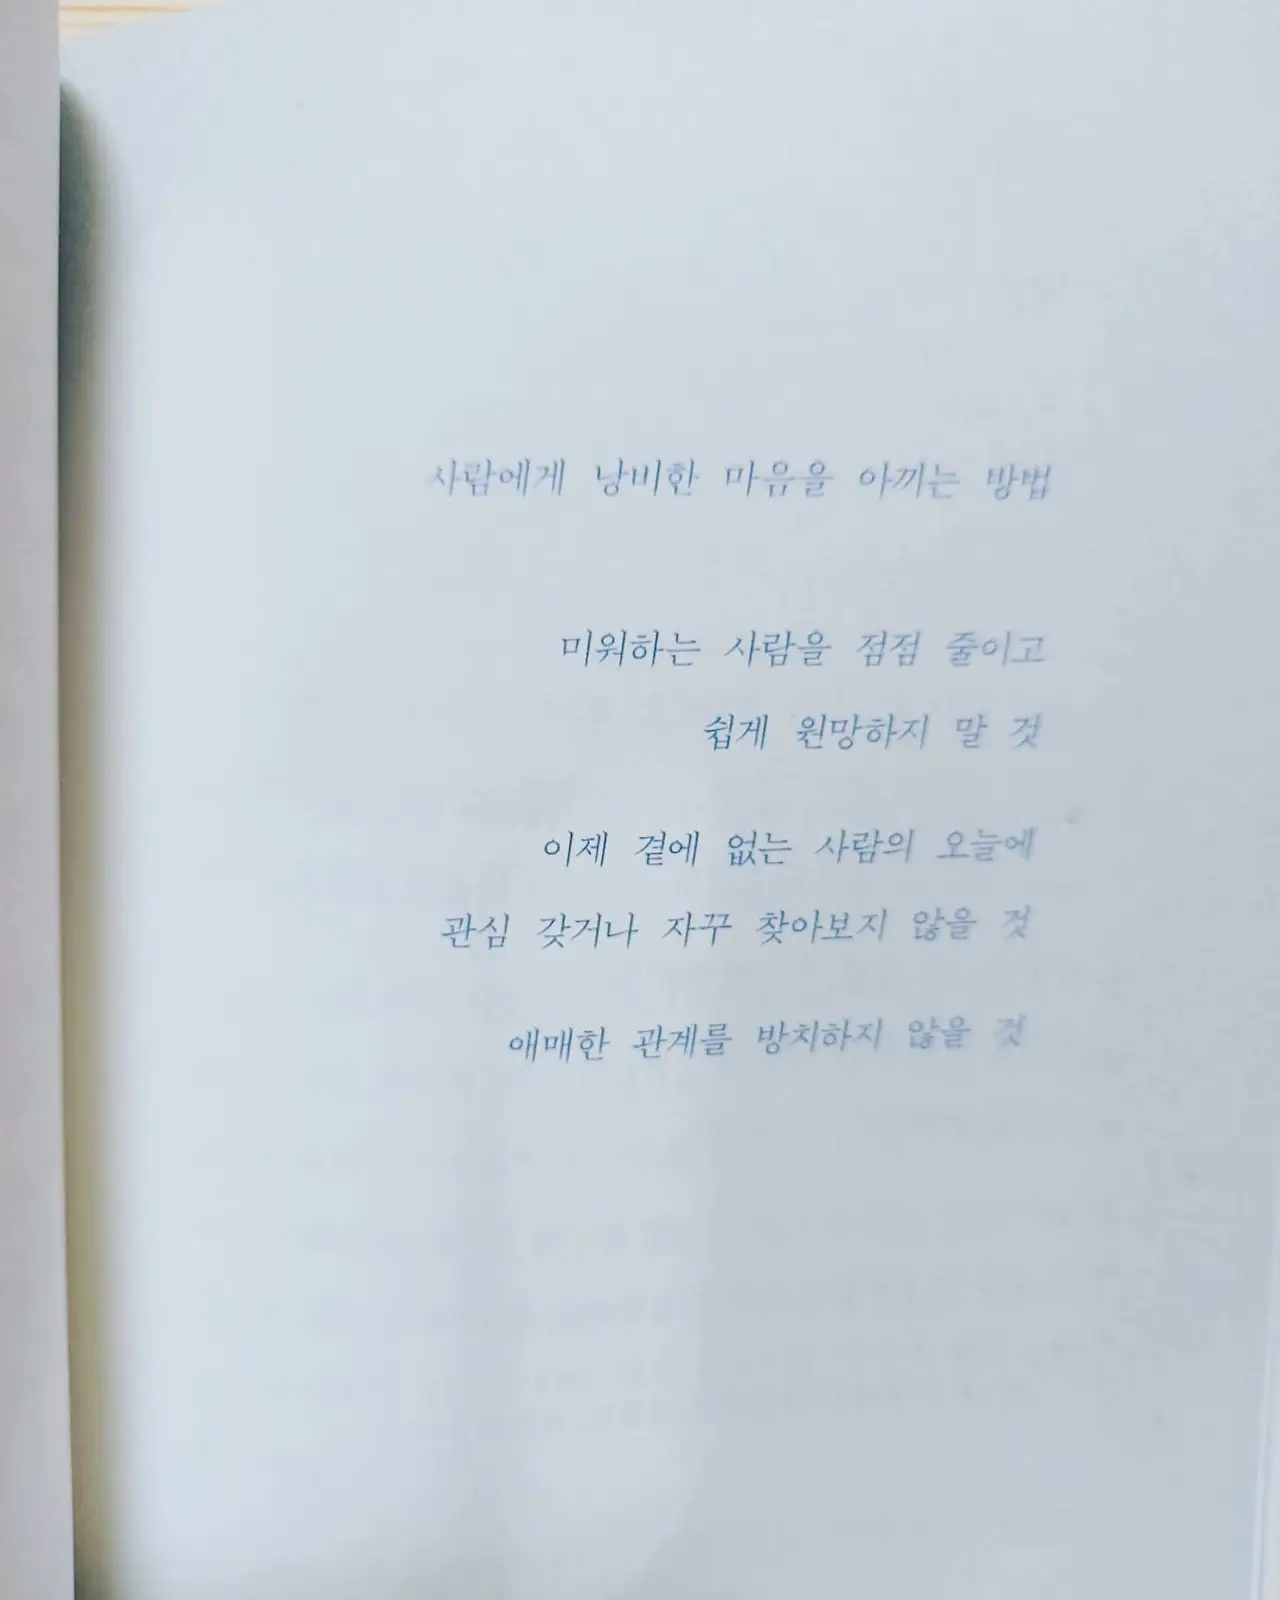 사람에게 낭비한 마음을 아끼는 방법
미워하는 사람을 점점 줄이고
쉽게 원망하지 말 것
이제 곁에 없는 사람의 오늘에
관심 갖거나 자꾸 찾아보지 않을 것
애매한 관계를 방치하지 않을 것